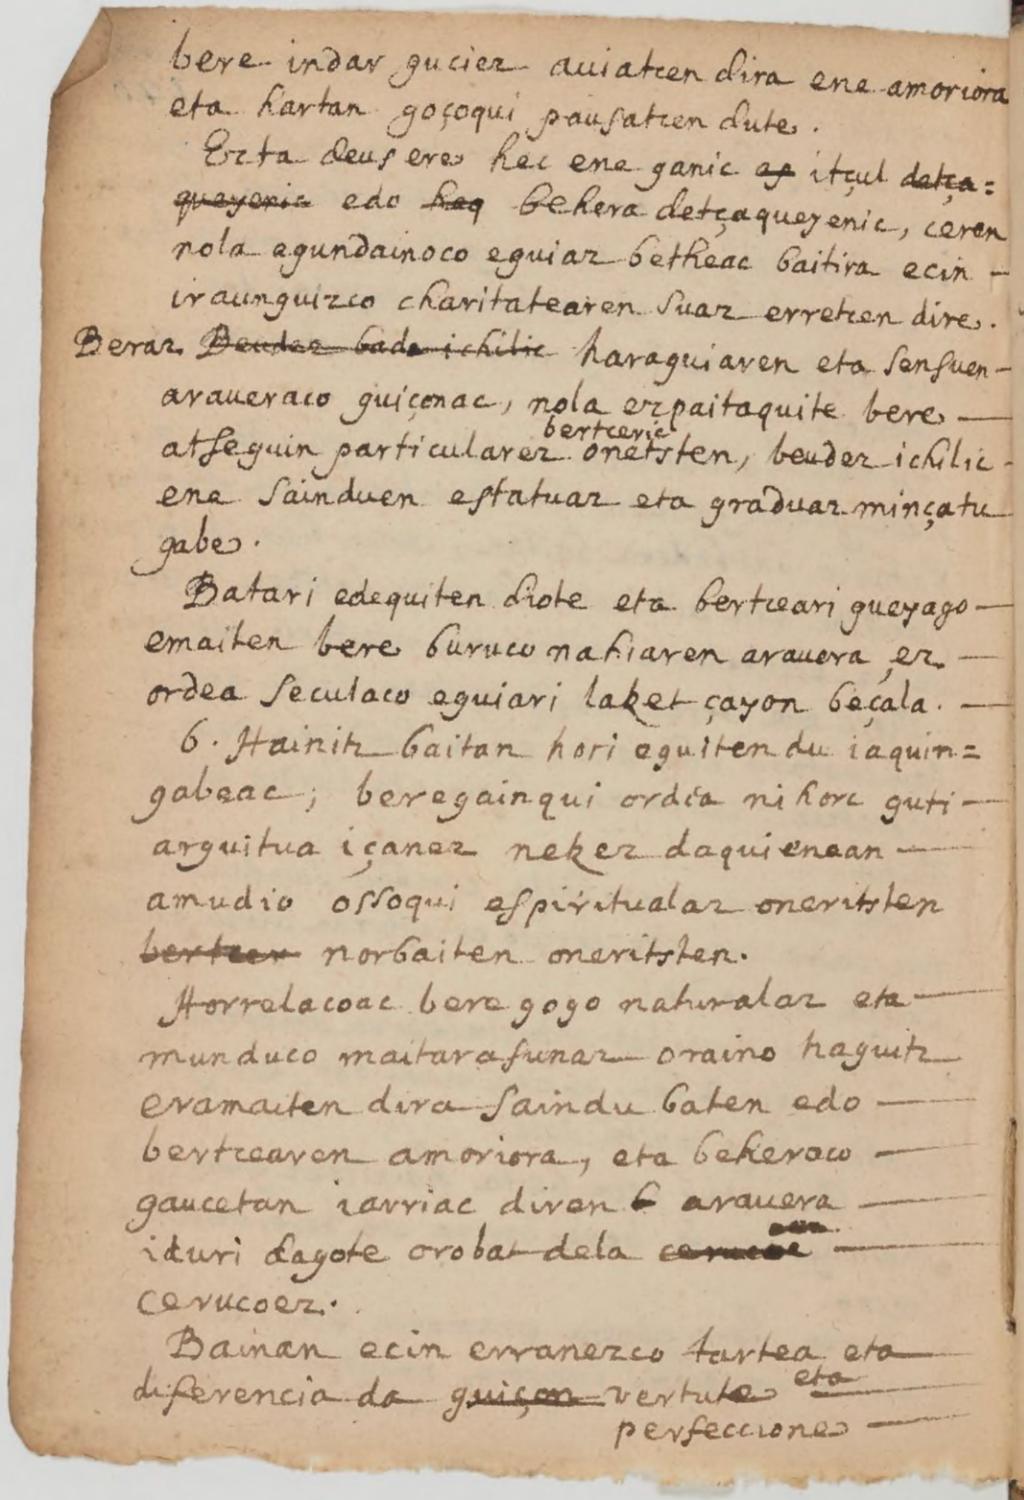 bere indar guciez auiatcen dira ene amoriora
eta hartan goçoqui pausatcen dute.
Ezta deus ere hec ene ganic es itçul detça=
queyenic edo heq behera detçaqueyenic, ceren
nola egundainoco eguiaz betheac baitira ecin -
iraunguizco charitatearen suaz erretcen dire.
Beraz Beudez bada ichilic haraguiaren eta sensuen -
araueraco guiçonac, nola ezpaitaquite bere —
bertceric
atseguin particularez onetsten, beudez ichilic -
ene sainduen estatuaz eta graduaz minçatu
gabe.
Batari edequiten diote eta bertceari gueyago —
emaiten bere buruco nahiaren arauera, ez —
ordea seculaco eguiari laket çayon beçala. —
6. Hainitz baitan hori eguiten du iaquin=
gabeac; beregainqui ordea nihorc guti —
arguitua içanez nekez daquienean —
amudio ossoqui espiritualaz oneritsten
bertcer norbaiten oneritsten.
Horrelacoac bere gogo naturalaz eta —
munduco maitarasunaz oraino haguitz
eramaiten dira saindu baten edo —
bertcearen amoriora, eta behereco —
gaucetan iarriac diren b arauera —
iduri dagote orobat dela —
cerucoez.
Bainan ecin erranezco tartea eta —
diferencia da guiçon vertute eta —
perfeccione —